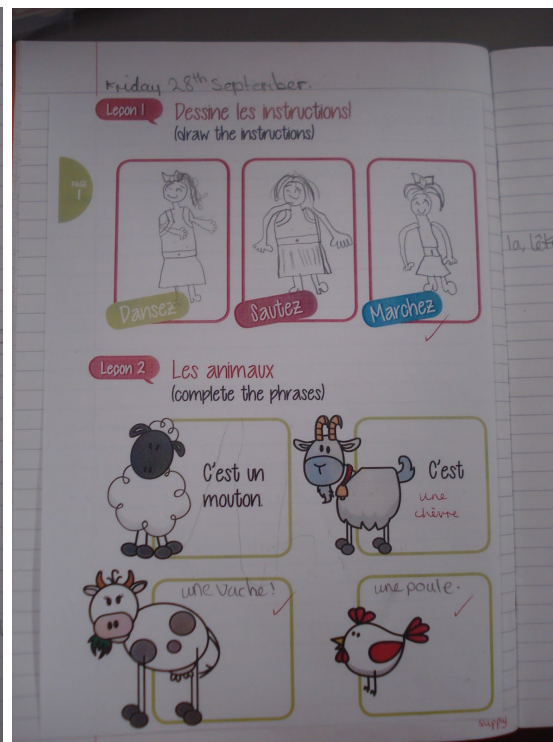 Friday 28th September.
Leçon 1
Dessine les instructions!
(draw the instructions)
PAGE
1
Dansez
Sautez
Marchez
Leçon 2
Les animaux
(complete the phrases)
C'est un
mouton.
C'est
une
chèvre
une vache!
une poule.